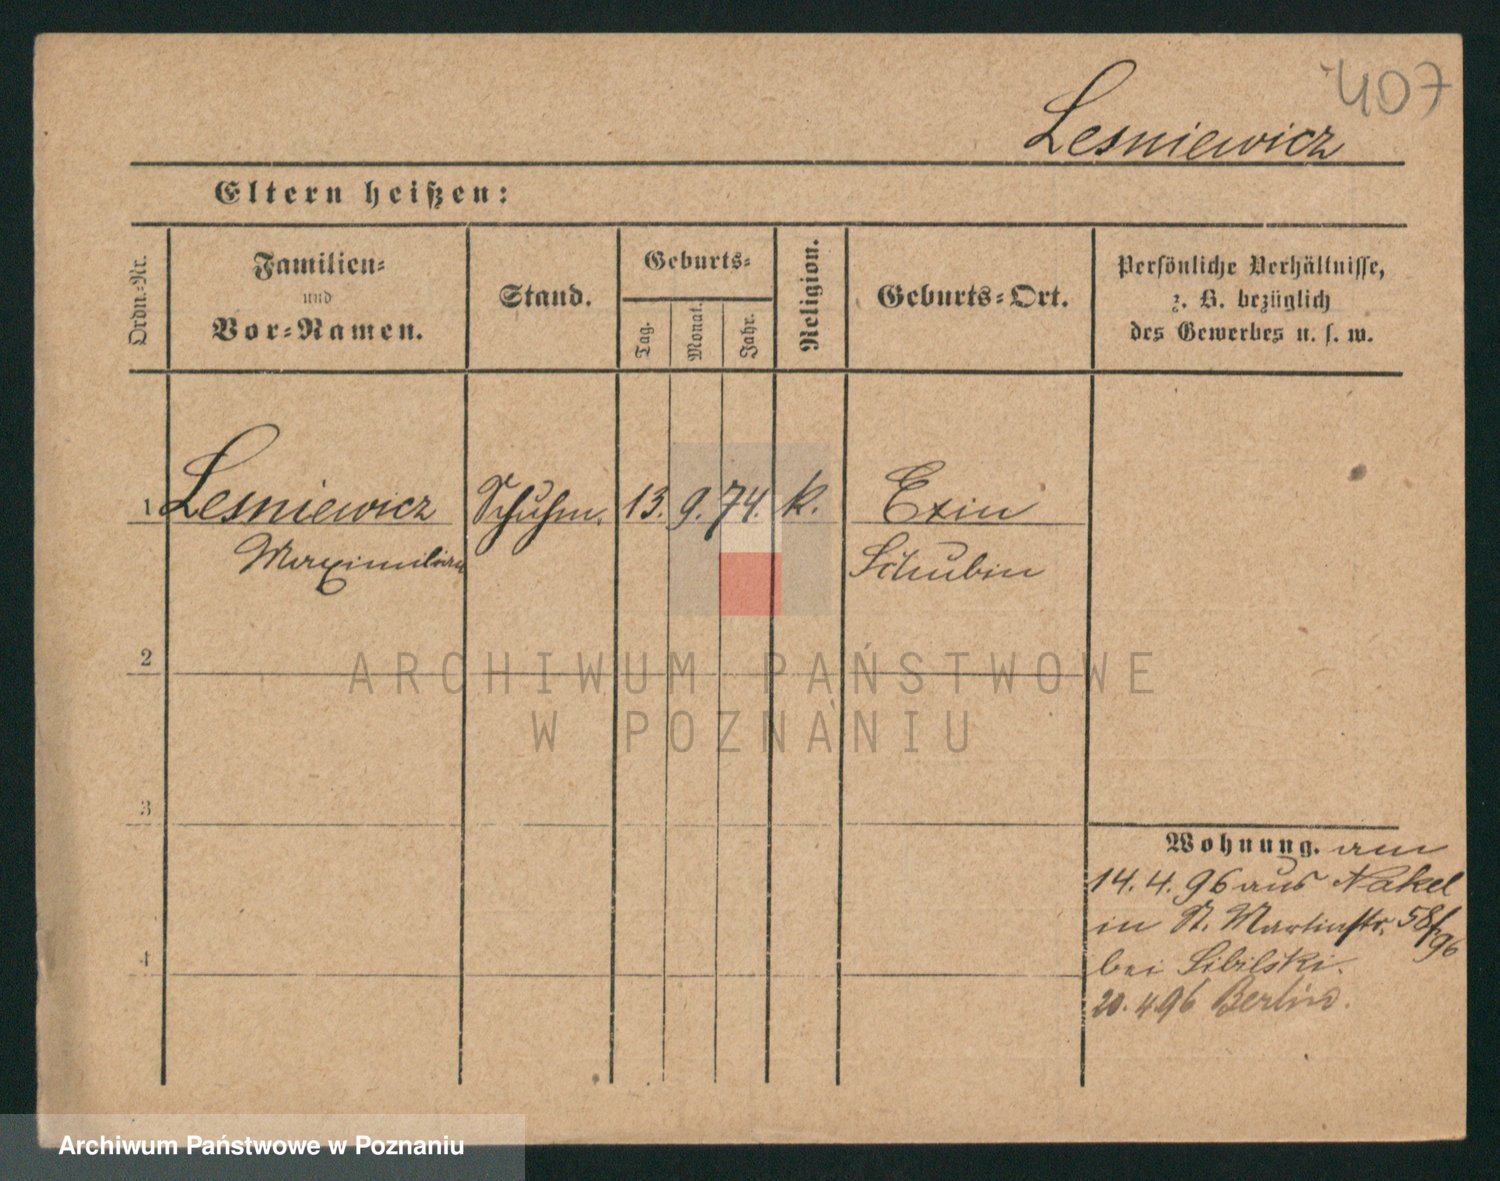 407
Lesniewicz
Eltern heißen:
Ordn.-Nr.
Familien-
und
Vor-Namen.
Stand.
Geburts-
Tag.
Monat.
Jahr.
Religion.
Geburts-Ort.
Persönliche Verhältnisse,
z. B. bezüglich
des Gewerbes u. s. w.
1 Lesniewicz Schuhm. 13. 9. 74. k. Exin
Maximilian Schubin
2
ARCHIWUM PAŃSTWOWE
W POZNANIU
3
Wohnung. am
14. 4. 96 aus Nakel
in St. Martinstr. 58/96
bei Sibilski.
4
20. 4 96 Berlin.
Archiwum Państwowe w Poznaniu